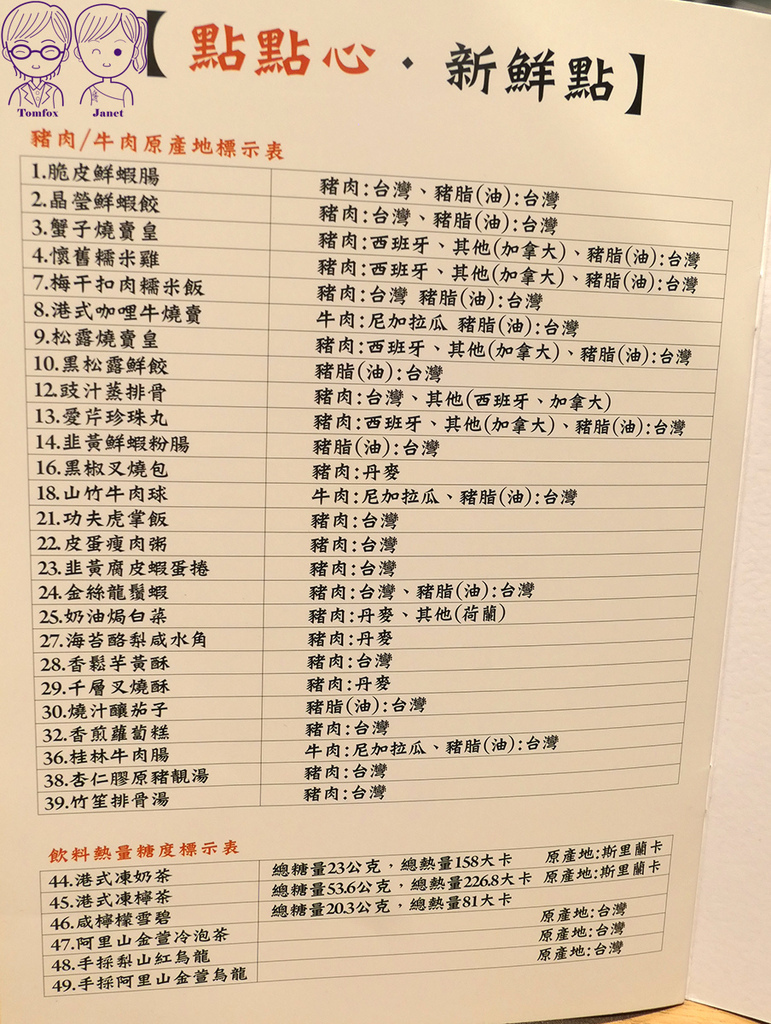 Tomfox Janet
【點點心·新鮮點】
豬肉/牛肉原產地標示表
1.脆皮鮮蝦腸 豬肉:台灣、豬脂(油):台灣
2.晶瑩鮮蝦餃 豬肉:台灣、豬脂(油):台灣
3.蟹子燒賣皇 豬肉:西班牙、其他(加拿大)、豬脂(油):台灣
4.懷舊糯米雞 豬肉:西班牙、其他(加拿大)、豬脂(油):台灣
7.梅干扣肉糯米飯 豬肉:台灣 豬脂(油):台灣
8.港式咖哩牛燒賣 牛肉:尼加拉瓜 豬脂(油):台灣
9.松露燒賣皇 豬肉:西班牙、其他(加拿大)、豬脂(油):台灣
10.黑松露鮮餃 豬脂(油):台灣
12.豉汁蒸排骨 豬肉:台灣、其他(西班牙、加拿大)
13.愛芹珍珠丸 豬肉:西班牙、其他(加拿大)、豬脂(油):台灣
14.韭黃鮮蝦粉腸 豬脂(油):台灣
16.黑椒叉燒包 豬肉:丹麥
18.山竹牛肉球 牛肉:尼加拉瓜、豬脂(油):台灣
21.功夫虎掌飯 豬肉:台灣
22.皮蛋瘦肉粥 豬肉:台灣
23.韭黃腐皮蝦蛋捲 豬肉:台灣
24.金絲龍鬚蝦 豬肉:台灣、豬脂(油):台灣
25.奶油焗白菜 豬肉:丹麥、其他(荷蘭)
27.海苔酪梨咸水角 豬肉:丹麥
28.香鬆芋黃酥 豬肉:台灣
29.千層叉燒酥 豬肉:丹麥
30.燒汁釀茄子 豬脂(油):台灣
32.香煎蘿蔔糕 豬肉:台灣
36.桂林牛肉腸 牛肉:尼加拉瓜、豬脂(油):台灣
38.杏仁膠原豬靚湯 豬肉:台灣
39.竹笙排骨湯 豬肉:台灣
飲料熱量糖度標示表
44.港式凍奶茶 總糖量23公克，總熱量158大卡 原產地:斯里蘭卡
45.港式凍檸茶 總糖量53.6公克，總熱量226.8大卡 原產地:斯里蘭卡
46.咸檸檬雪碧 總糖量20.3公克，總熱量81大卡
47.阿里山金萱冷泡茶 原產地:台灣
48.手採梨山紅烏龍 原產地:台灣
49.手採阿里山金萱烏龍 原產地:台灣